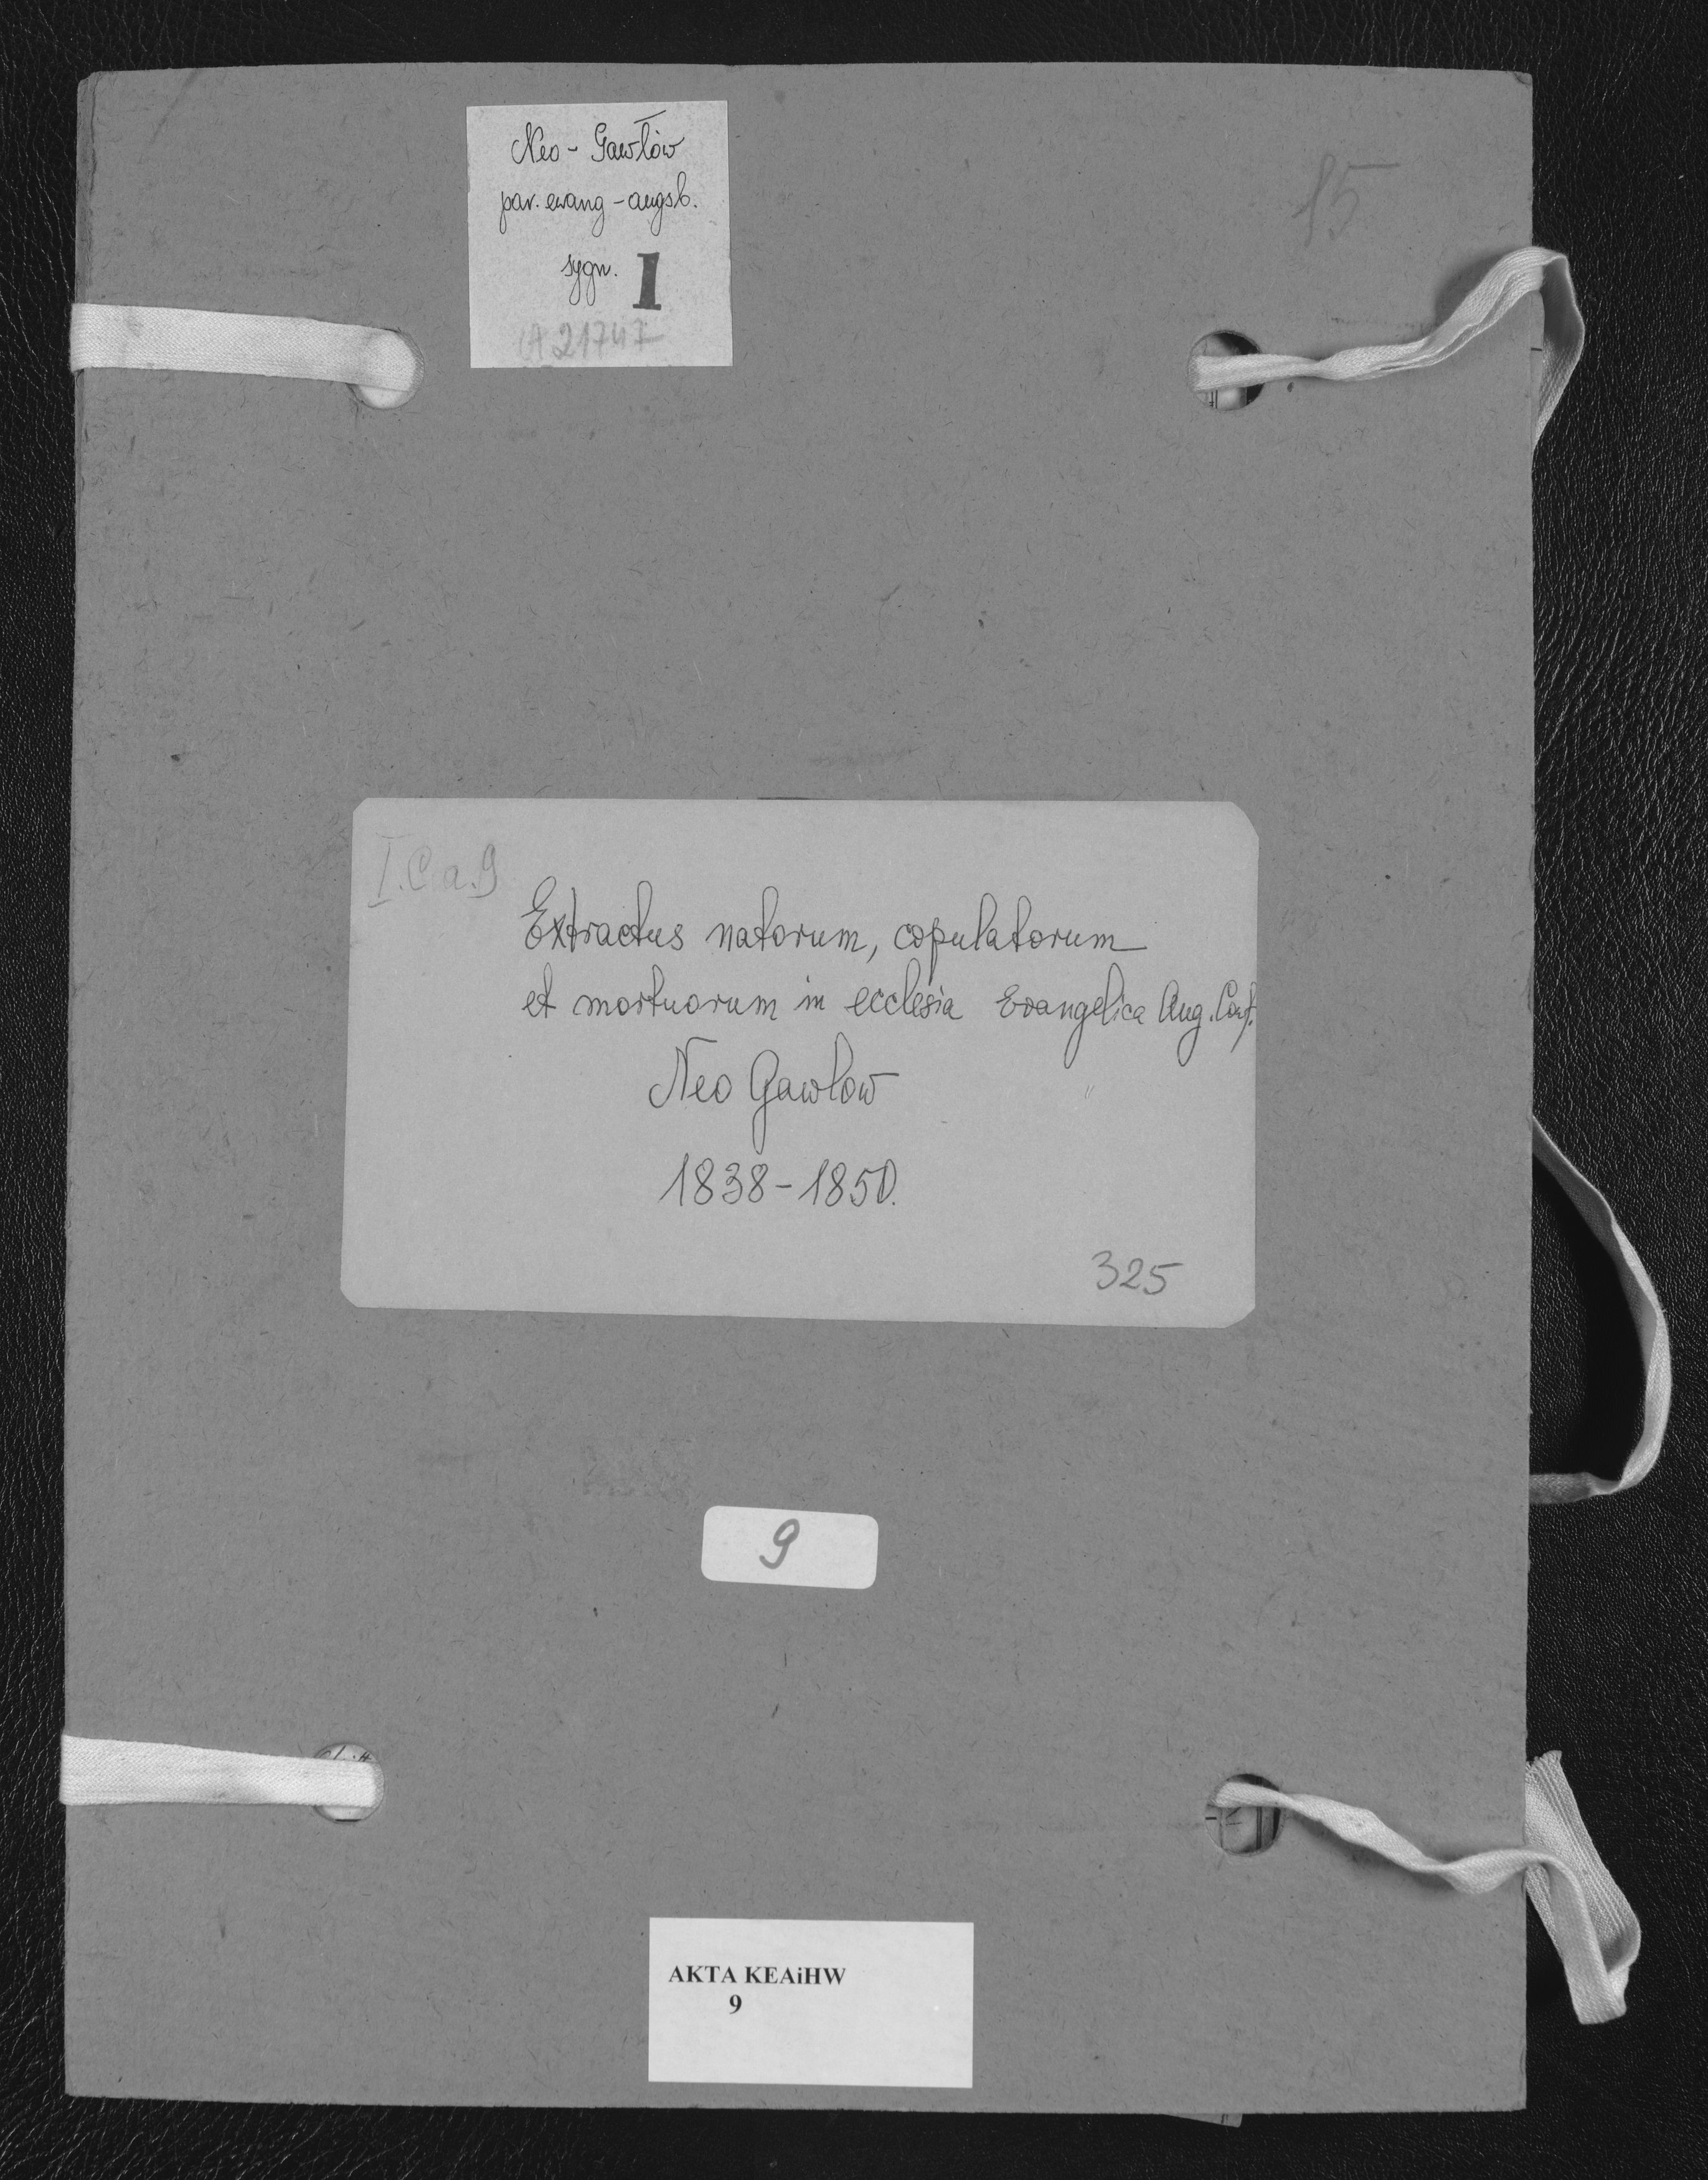 Neo - Gawłów
par. ewang - augsb.
sygn. 1
A 21747
15
I.C.a.9
Extractus natorum, copulatorum
et mortuorum in ecclesia Evangelica Aug. Conf.
Neo Gawlow
1838-1850.
325
9
AKTA KEAiHW
9